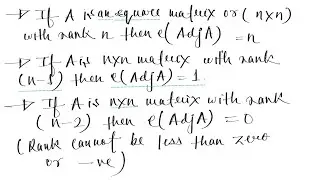 → If A is an square matrix or (nxn)
with rank n then e(AdjA) = n
→ If A is nxn matrix with rank
(n-1) then e(AdjA) = 1.
→ If A is nxn matrix with rank
(n-2) then e(AdjA) = 0
(Rank cannot be less than zero
or -ve)